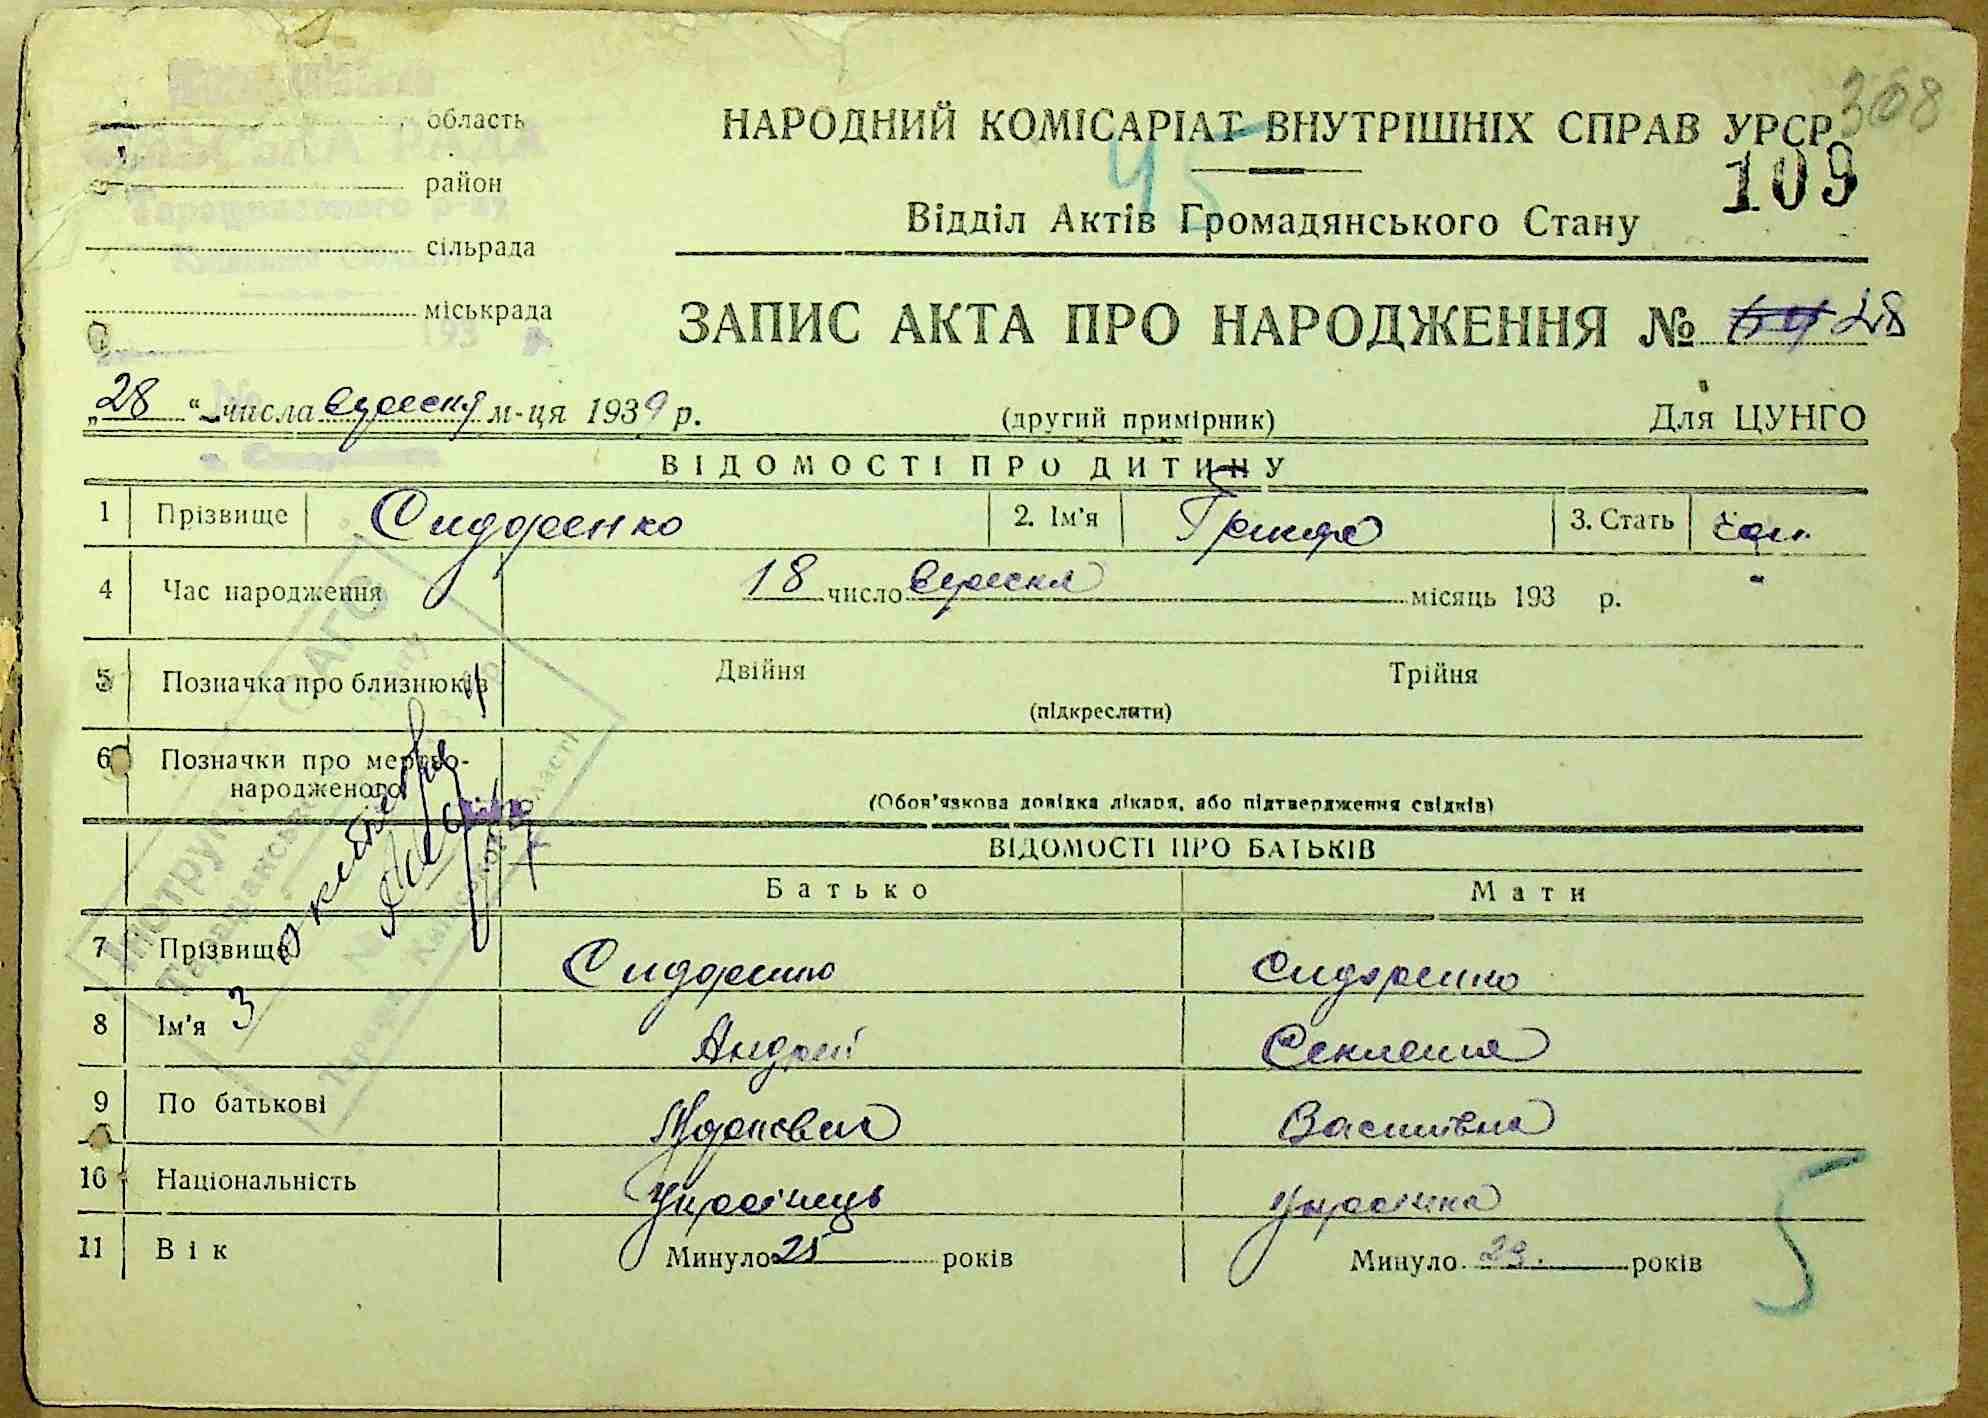 область
РАДА
район
Таращанського р-ну
сільрада
міськрада
193
НАРОДНИЙ КОМІСАРІАТ ВНУТРІШНІХ СПРАВ УРСР
308
45
109
Відділ Актів Громадянського Стану
ЗАПИС АКТА ПРО НАРОДЖЕННЯ № 28
„28“ числа вересня м-ця 1939 р.
(другий примірник)
Для ЦУНГО
ВІДОМОСТІ ПРО ДИТИНУ
1 Прізвище Сидоренко 2. Ім'я Гриша 3. Стать чол.
4 Час народження 18 число вересня місяць 193 р.
5 Позначка про близнюків Двійня Трійня
(підкреслити)
6 Позначки про мертво-
народженого
(Обов'язкова довідка лікаря, або підтвердження свідків)
ВІДОМОСТІ ПРО БАТЬКІВ
Батько Мати
7 Прізвище Сидоренко Сидоренко
8 Ім'я Андрій Секлета
9 По батькові Василівна
10 Національність Українець Українка
11 Вік Минуло 25 років Минуло 29. років
5